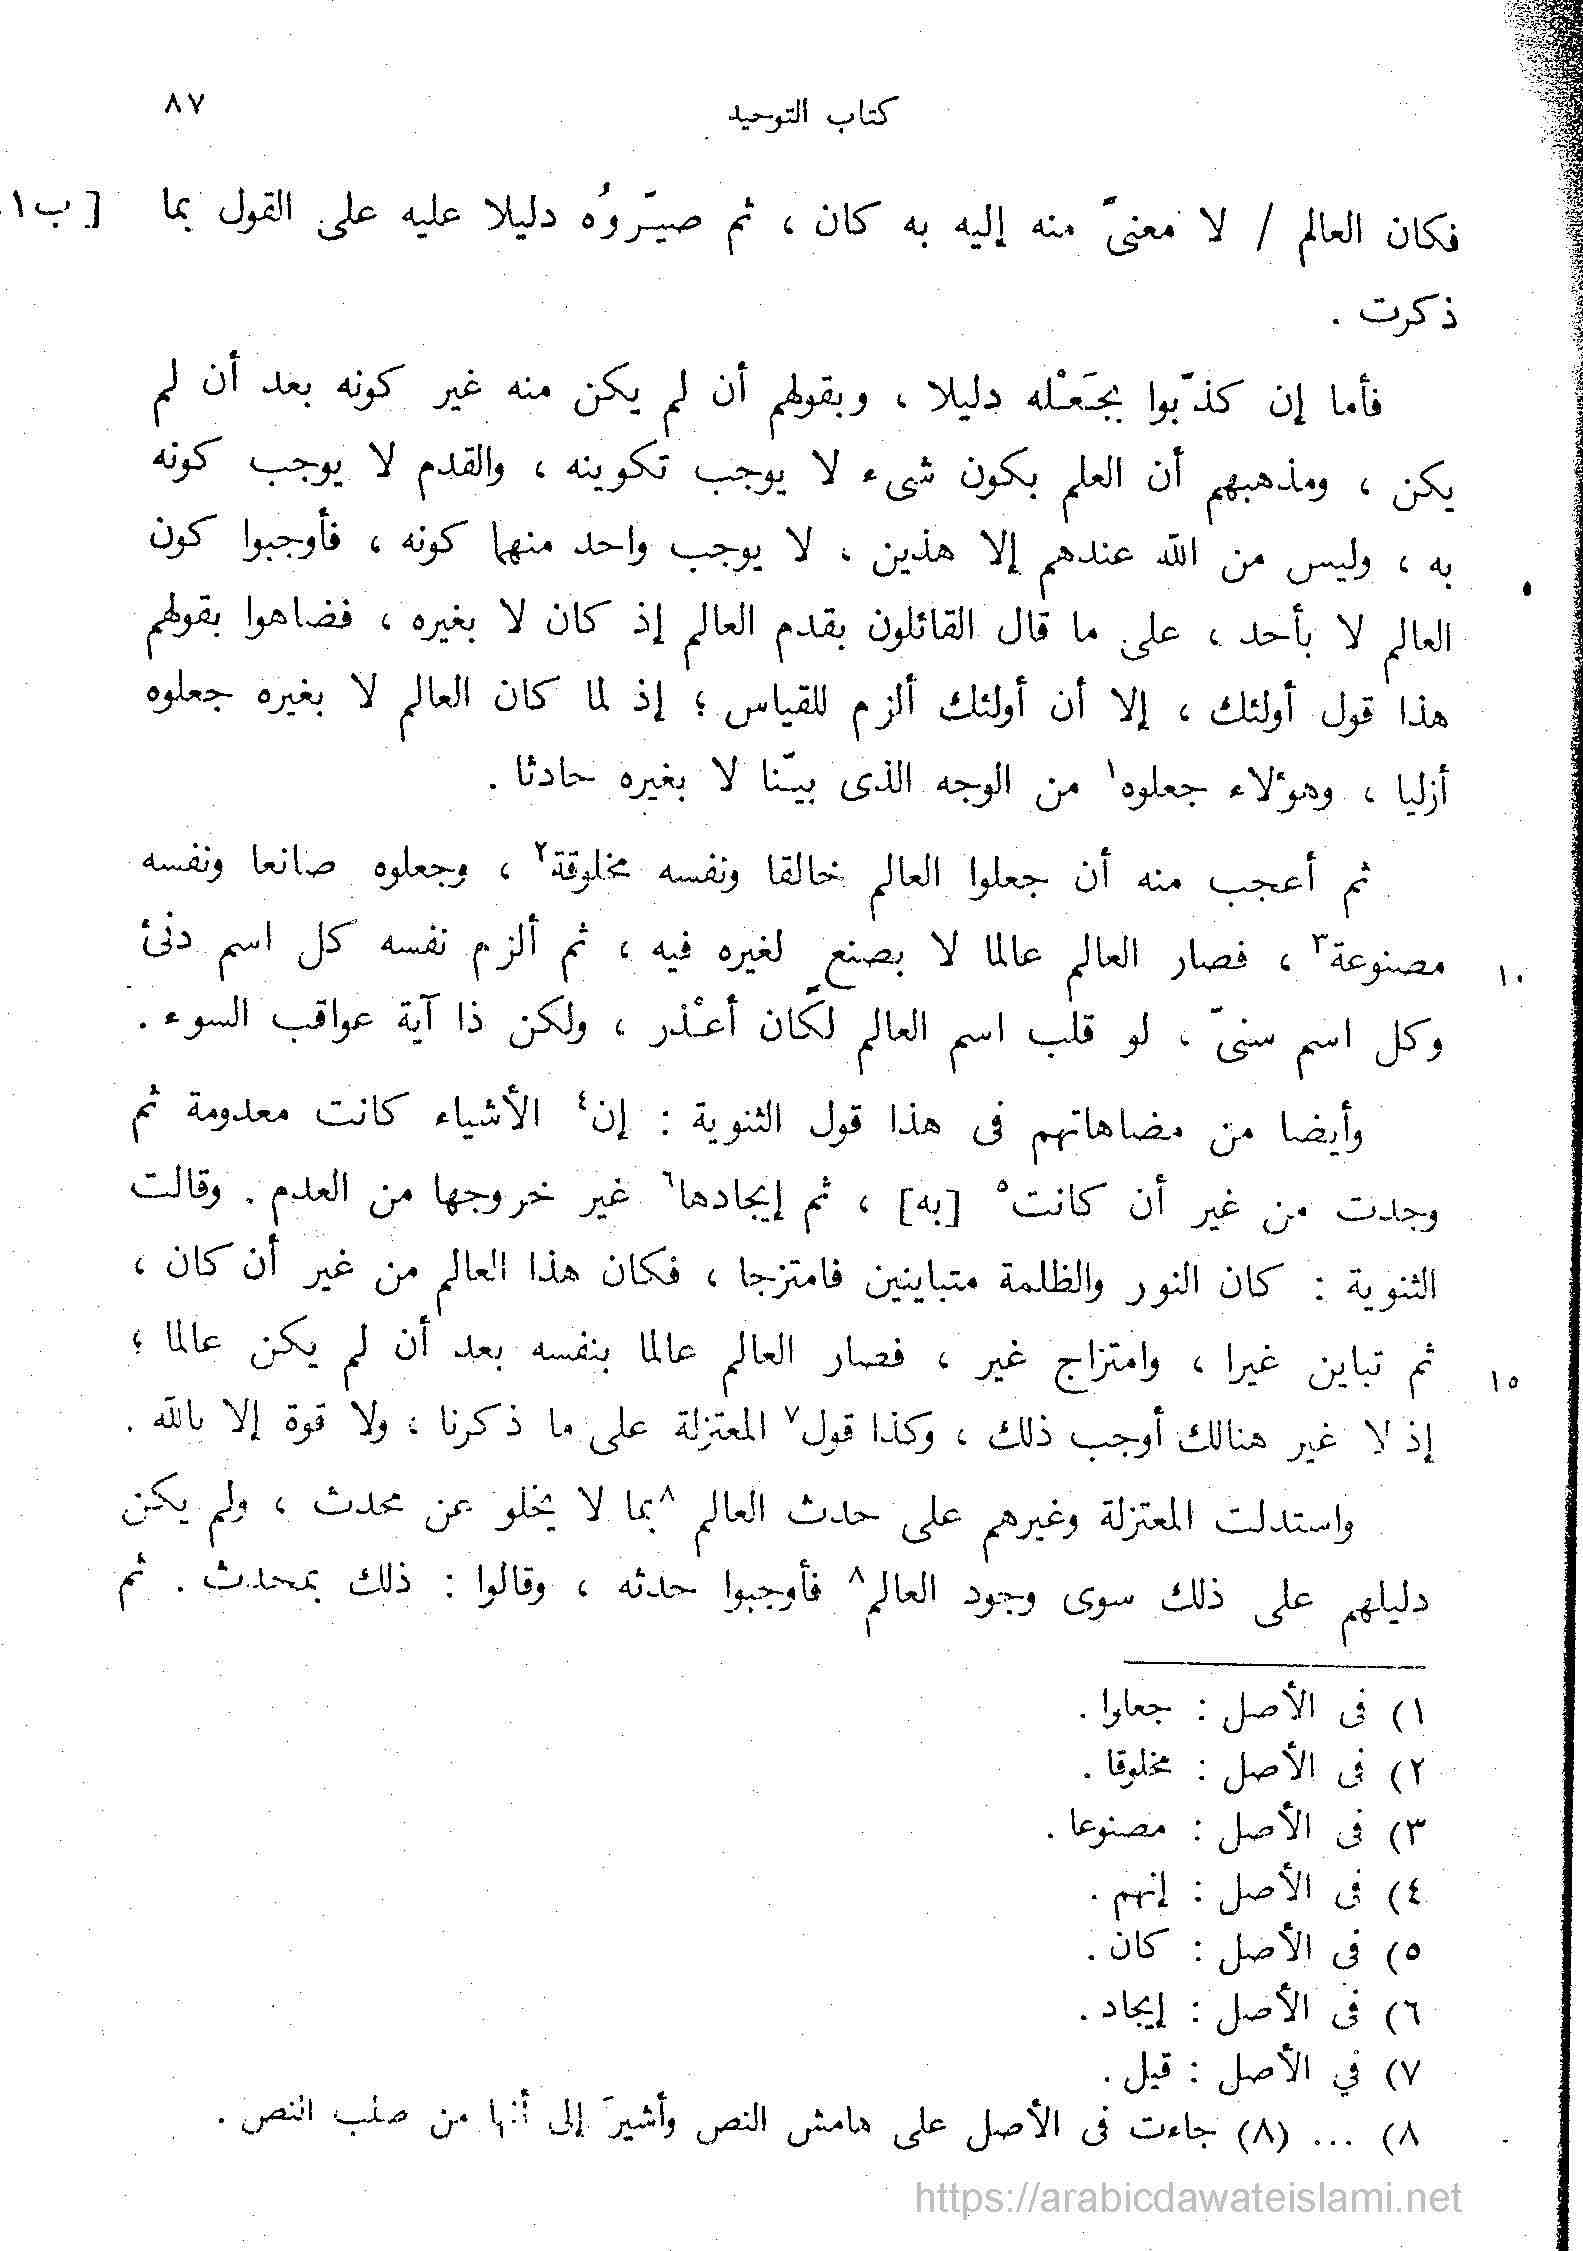 كتاب التوحيد ٨٧
فكان العالم / لا معنىّ منه إليه به كان ، ثم صيّروُه دليلا عليه على القول بما [ ب١
ذكرت .
فأما إن كذّبوا بجَعْله دليلا ، وبقولهم أن لم يكن منه غير كونه بعد أن لم
يكن ، ومذهبهم أن العلم بكون شىء لا يوجب تكوينه ، والقدم لا يوجب كونه
به ، وليس من الله عندهم إلا هذين ، لا يوجب واحد منهما كونه ، فأوجبوا كون
العالم لا بأحد ، على ما قال القائلون بقدم العالم إذ كان لا بغيره ، فضاهوا بقولهم
هذا قول أولئك ، إلا أن أولئك ألزم للقياس ؛ إذ لما كان العالم لا بغيره جعلوه
أزليا ، وهؤلاء جعلوه١ من الوجه الذى بيّنا لا بغيره حادثا .
ثم أعجب منه أن جعلوا العالم خالقا ونفسه مخلوقة٢ ، وجعلوه صانعا ونفسه
مصنوعة٣ ، فصار العالم عالما لا بصنع لغيره فيه ، ثم ألزم نفسه كل اسم دنىْ ١٠
وكل اسم سنىّ ، لو قلب اسم العالم لكان أعْذر ، ولكن ذا آية عواقب السوء .
وأيضا من مضاهاتهم فى هذا قول الثنوية : إن٤ الأشياء كانت معدومة ثم
وجدت من غير أن كانت٥ [به] ، ثم إيجادها٦ غير خروجها من العدم . وقالت
الثنوية : كان النور والظلمة متباينين فامتزجا ، فكان هذا العالم من غير أن كان ،
ثم تباين غيرا ، وامتزاج غير ، فصار العالم عالما بنفسه بعد أن لم يكن عالما ؛ ١٥
إذ لا غير هنالك أوجب ذلك ، وكذا قول٧ المعتزلة على ما ذكرنا ، ولا قوة إلا بالله .
واستدلت المعتزلة وغيرهم على حدث العالم ٨بما لا يخلو عن محدث ، ولم يكن
دليلهم على ذلك سوى وجود العالم٨ فأوجبوا حدثه ، وقالوا : ذلك بمحدث . ثم
١) فى الأصل : جعلوا .
٢) فى الأصل : مخلوقا .
٣) فى الأصل : مصنوعا .
٤) فى الأصل : إنهم .
٥) فى الأصل : كان .
٦) فى الأصل : إيجاد .
٧) في الأصل : قيل .
٨) ... (٨) جاءت فى الأصل على هامش النص وأشيرَ إلى أنها من صلب النص .
https://arabicdawateislami.net